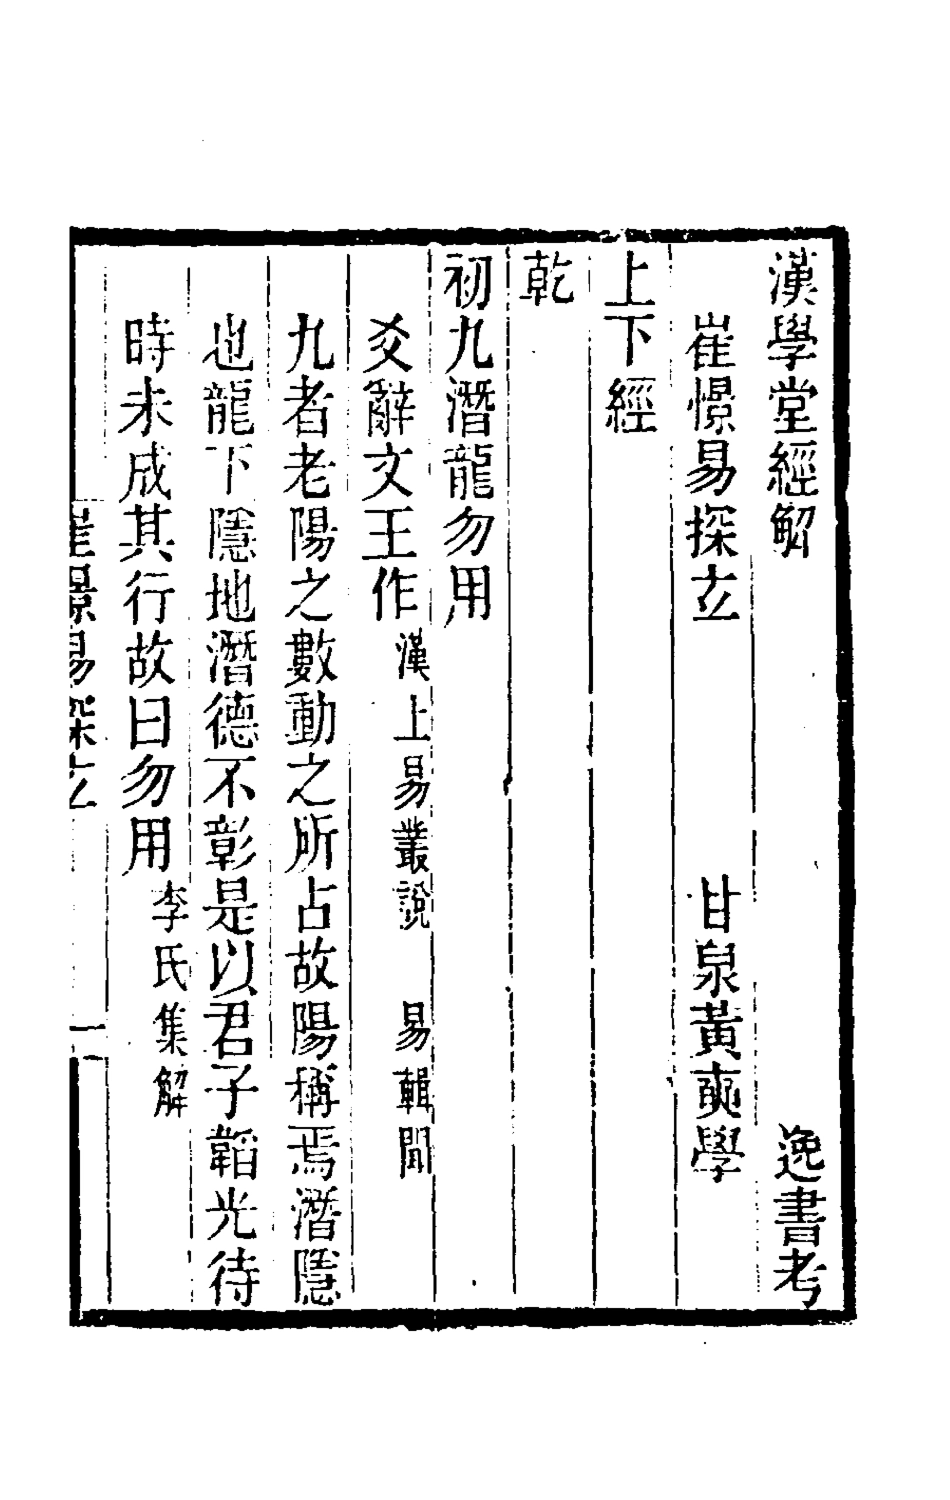 漢學堂經解　逸書考
崔憬易探玄　甘泉黃奭學
上下經
乾
初九潛龍勿用
爻辭文王作漢上易叢說　易輯聞
九者老陽之數動之所占故陽稱焉潛隱
也龍下隱地潛德不彰是以君子韜光待
時未成其行故曰勿用李氏集解
崔憬易探玄　一